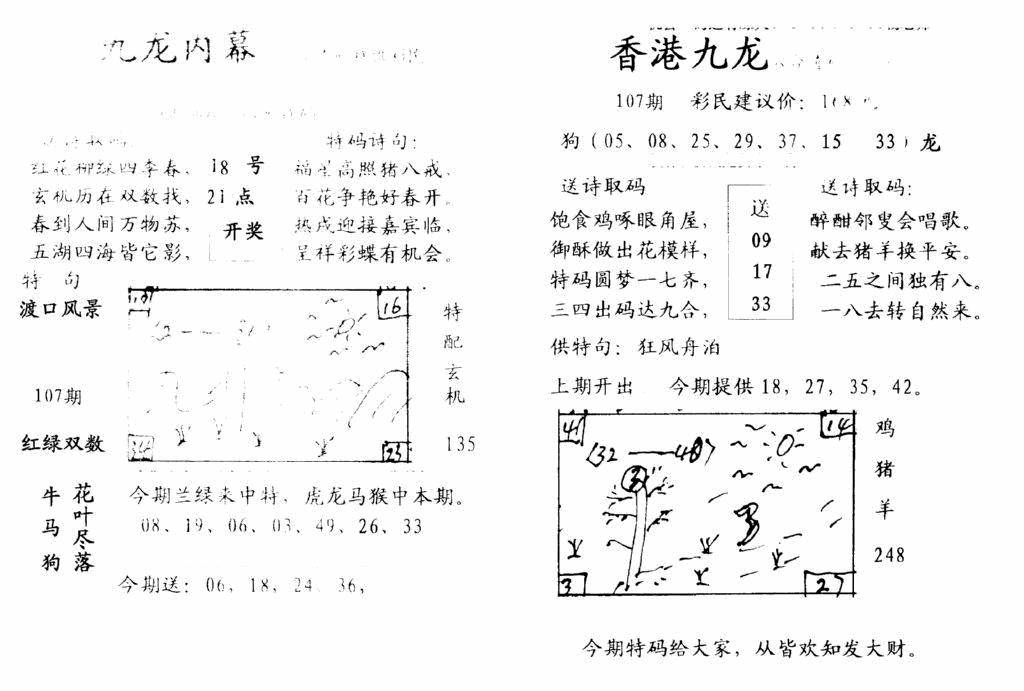 九龙内幕
特码诗句：
红花柳绿四季春，
玄机历在双数找，
春到人间万物苏，
五湖四海皆它影，
18 号
21 点
开奖
福星高照猪八戒，
百花争艳好春开。
热戌迎接嘉宾临，
呈祥彩蝶有机会。
特 句
渡口风景
107期
红绿双数
16
34
23
特配玄机
135
牛
马
狗
花叶尽落
今期兰绿来中特，虎龙马猴中本期。
08、19、06、03、49、26、33
今期送：06，18，24，36，
香港九龙
107期 彩民建议价：
狗（05、08、25、29、37、15 33）龙
送诗取码
饱食鸡啄眼角屋，
御酥做出花模样，
特码圆梦一七齐，
三四出码达九合，
送
09
17
33
送诗取码：
醉酣邻叟会唱歌。
献去猪羊换平安。
二五之间独有八。
一八去转自然来。
供特句：狂风舟泊
上期开出 今期提供18，27，35，42。
41
14
3
27
鸡
猪
羊
248
今期特码给大家，从皆欢知发大财。